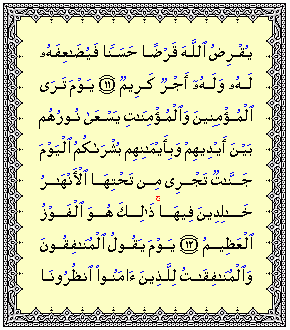 يُقْرِضُ ٱللَّهَ قَرْضًا حَسَنًا فَيُضَٰعِفَهُۥ
لَهُۥ وَلَهُۥٓ أَجْرٌ كَرِيمٌ ١١ يَوْمَ تَرَى
ٱلْمُؤْمِنِينَ وَٱلْمُؤْمِنَٰتِ يَسْعَىٰ نُورُهُم
بَيْنَ أَيْدِيهِمْ وَبِأَيْمَٰنِهِم بُشْرَىٰكُمُ ٱلْيَوْمَ
جَنَّٰتٌ تَجْرِى مِن تَحْتِهَا ٱلْأَنْهَٰرُ
خَٰلِدِينَ فِيهَا ۚ ذَٰلِكَ هُوَ ٱلْفَوْزُ
ٱلْعَظِيمُ ١٢ يَوْمَ يَقُولُ ٱلْمُنَٰفِقُونَ
وَٱلْمُنَٰفِقَٰتُ لِلَّذِينَ ءَامَنُوا۟ ٱنظُرُونَا